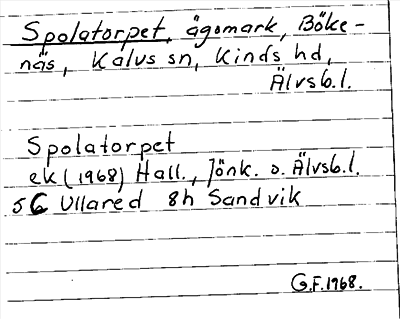 Spolatorpet, ägomark, Böke-
näs, Kalvs sn, Kinds hd,
Älvsb.l.
Spolatorpet
ek (1968) Hall., Jönk. o. Älvsb.l.
5C Ullared 8h Sandvik
G.F.1968.